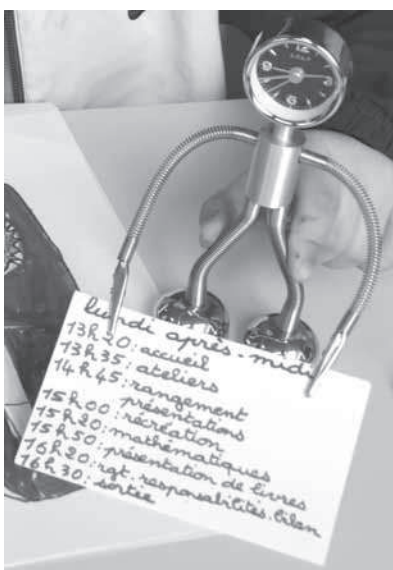 lundi après-midi
13h20: accueil
13h35: ateliers
14h45: rangement
présentations
15h00: récréation
15h20: mathématiques
15h50: présentation de livres
16h20: rgt. responsabilités. bilan
16h30: sortie